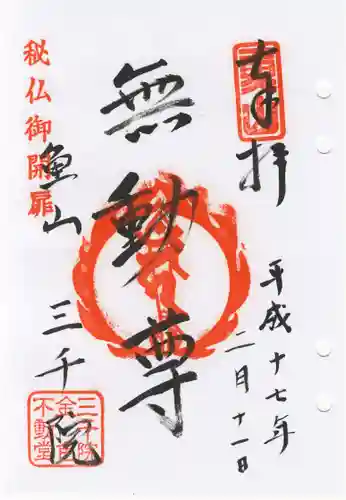 奉拝
平成十七年
二月十一日
無動尊
秘仏御開扉
魚山
三千院
三千院
金色
不動堂